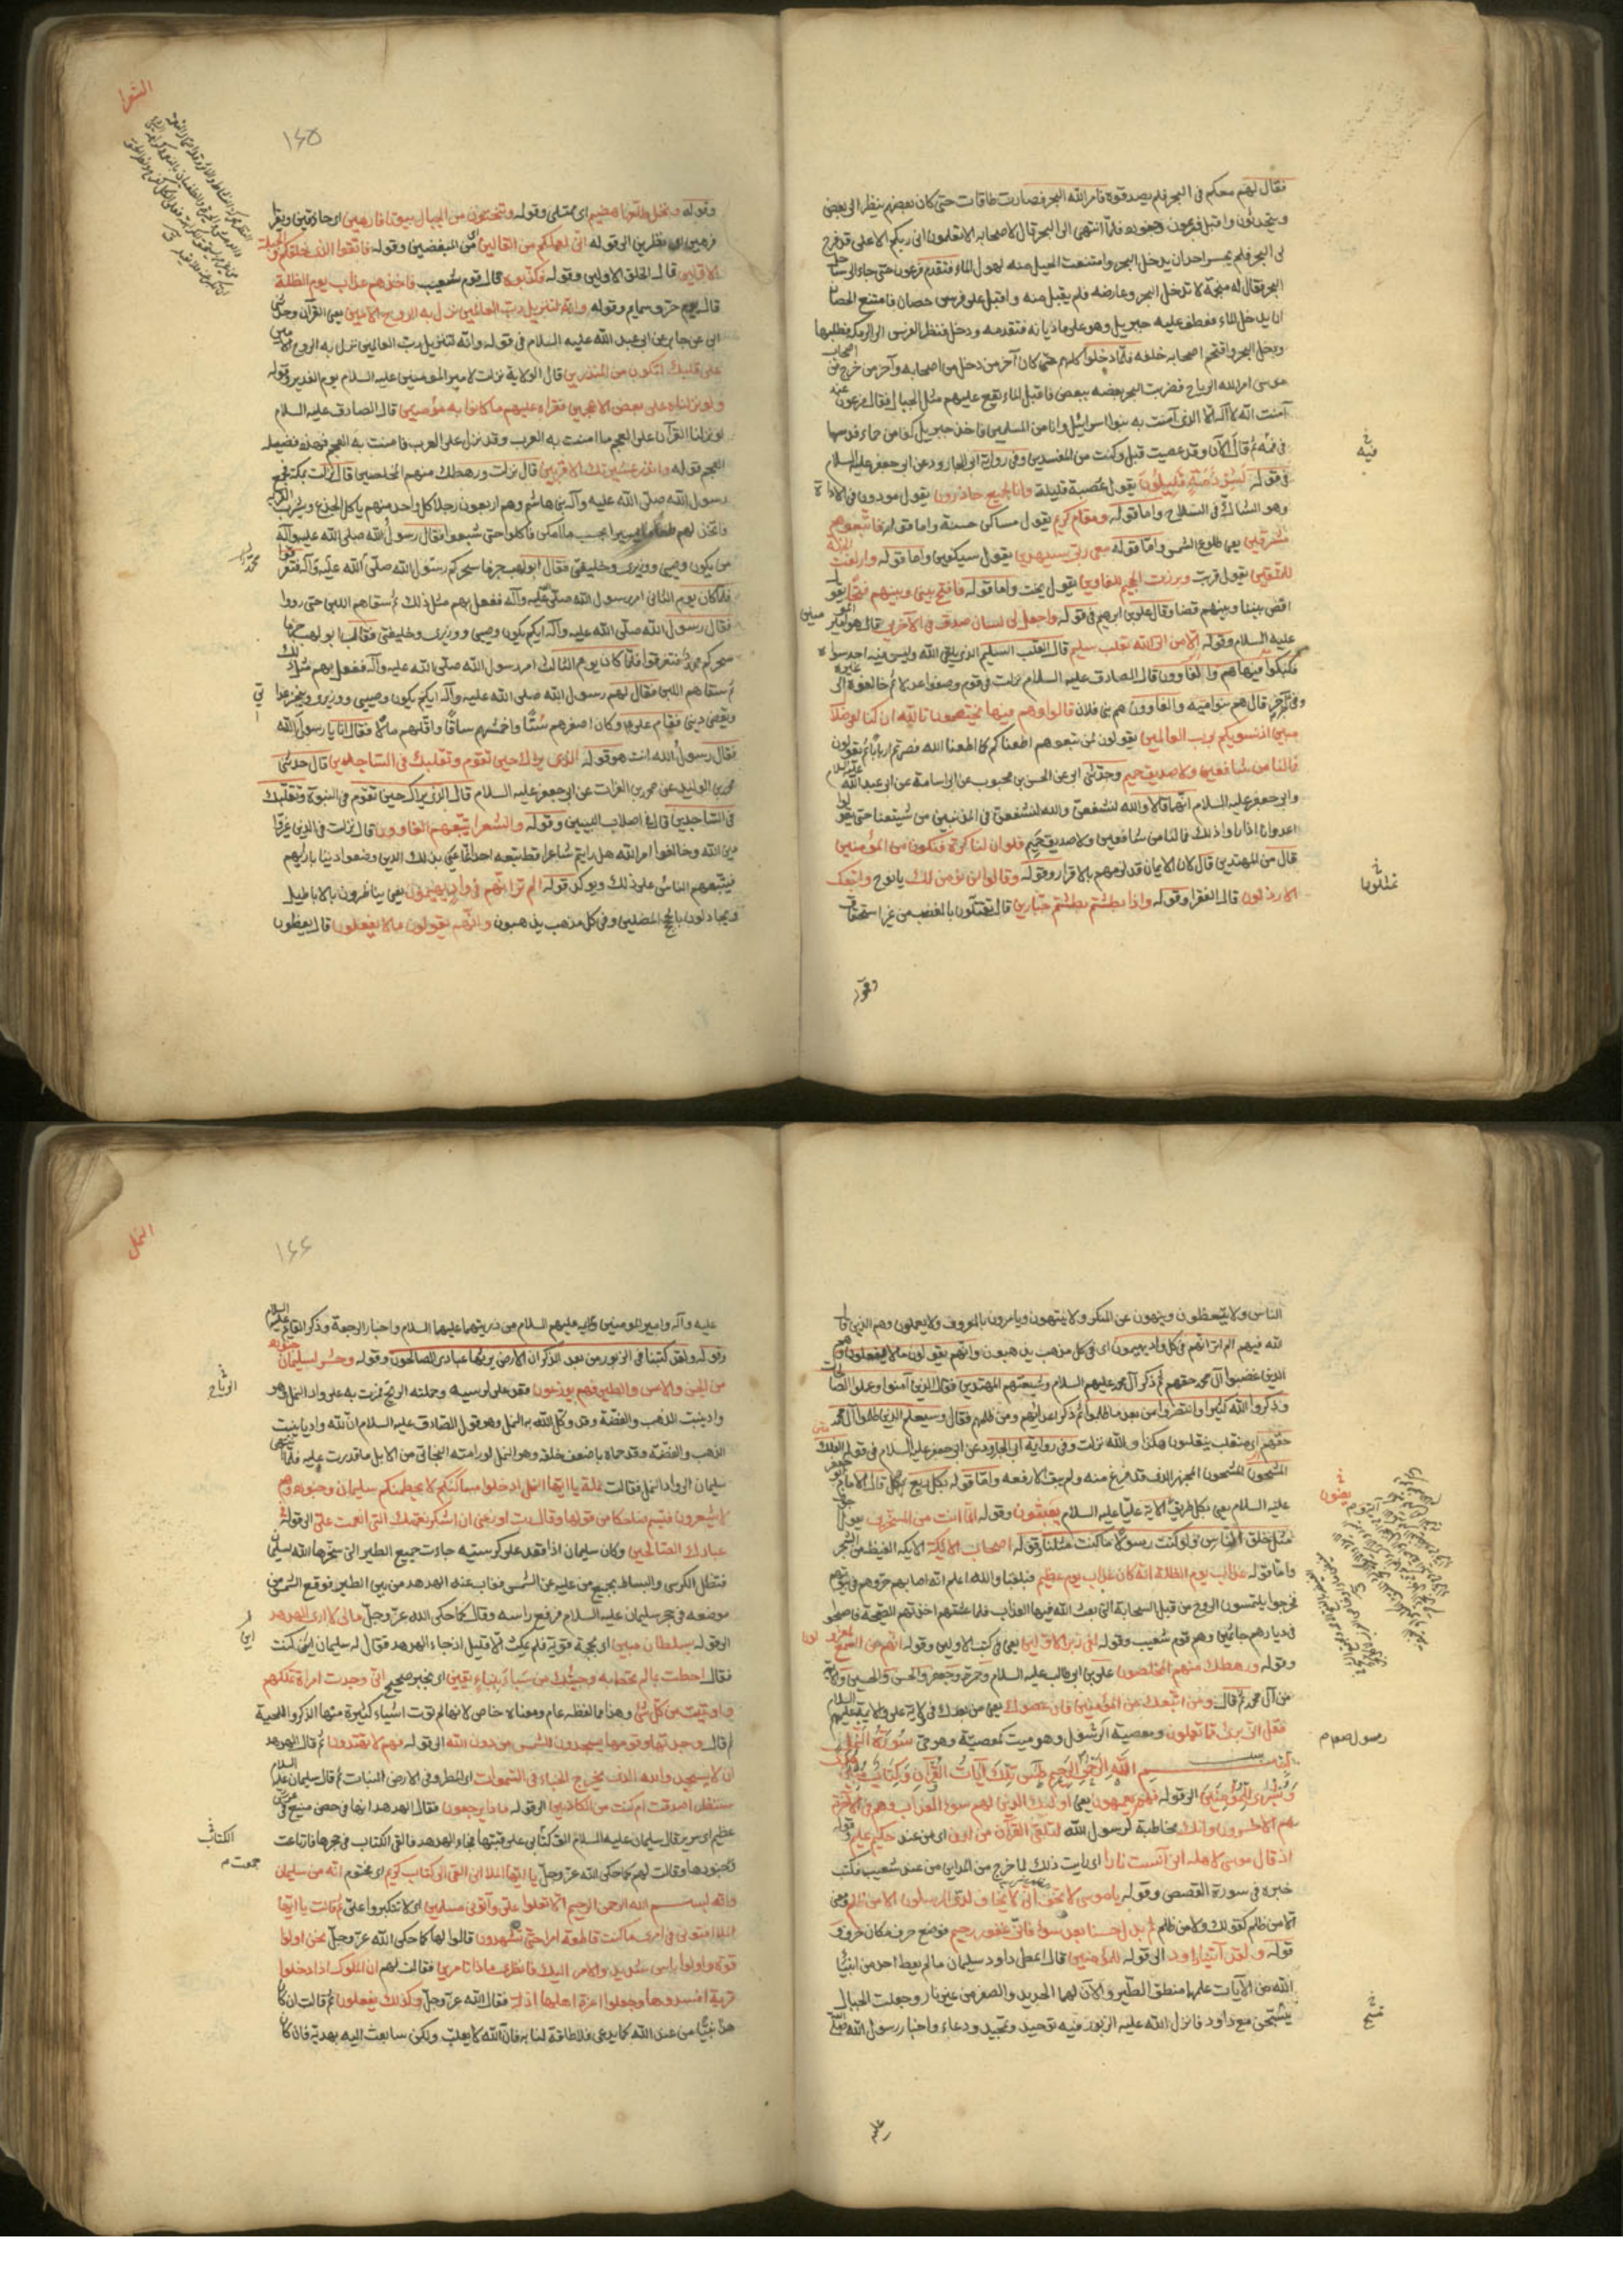 فقال لهم معكم فى البحر فلم يصدقوه فامر الله البحر فصارت طاقات حتى كان بعضهم ينظر الى بعض
ويتحدثون واقبل فرعون وجنوده فلمّا انتهى الى البحر قال لاصحابه الا تعلمون انى ربكم الاعلى قد فرج
لى البحر فلم يجسر احد ان يدخل البحر وامتنعت الخيل منه لهول الماء فتقدم فرعون حتى جاء الى ساحل
البحر فقال له منجمه لا تدخل البحر وعارضه فلم يقبل منه واقبل على فرس حصان فامتنع الحصان
ان يدخل الماء فعطف عليه جبريل وهو على ماديانه فتقدمه ودخل فنظر الفرس الى الرمكة فطلبها
ودخل البحر واقتحم اصحابه خلفه فلمّا دخلوا كلهم حتى كان آخر من دخل من اصحابه وآخر من خرج من اصحاب
موسى امر الله الرياح فضربت البحر بعضه ببعض فاقبل الماء يقع عليهم مثل الجبال فقال فرعون عند
آمنت انه لا آله الا الذى آمنت به بنوا اسرائيل وانا من المسلمين فاخذ جبريل كفا من حماة فدسها
فى فيه ثم قال الآن وقد عصيت قبل وكنت من المفسدين وفى رواية ابى الجارود عن ابى جعفر عليه السلام
فى قوله لشرذمة قليلون يقول عصبة قليلة وانا لجميع حاذرون يقول مودون فى الاداة
وهو الشاك فى السلاح واما قوله ومقام كريم يقول مساكن حسنة واما قوله فاتبعوهم
مشرقين يعنى طلوع الشمس واما قوله معى ربى سيهدين يقول سيكفين واما قوله وازلفت الجنة
للمتقين يقول قربت وبرزت الجحيم للغاوين يقول نحت واما قوله فافتح بينى وبينهم فتحا يقول
اقض بيننا وبينهم قضا وقال على بن ابرهيم فى قوله واجعل لى لسان صدق فى الآخرين قال هو امير المومنين
عليه السلام وقوله الا من اتى الله بقلب سليم قال القلب السليم الذى يلقى الله وليس فيه احد سواه
فكبكبوا فيها هم والغاوون قال الصادق عليه السلام نزلت فى قوم وصفوا عدلا ثم خالفوه الى غيره
وفى خبر آخر قال هم بنو اميه والغاوون هم بنى فلان قالوا وهم فيها يختصمون تالله ان كنا لفى ضلال
مبين اذ نسويكم برب العالمين يقولون لمن تبعوهم اطعناكم كما اطعنا الله فصرتم اربابا ثم يقولون
فما لنا من شافعين ولا صديق حميم وحدثنى ابى عن الحسن بن محبوب عن ابى اسامة عن ابى عبد الله عليه السلام
وابى جعفر عليه السلام انهما قالا والله لنشفعن والله لنشفعن فى المذنبين من شيعتنا حتى يقولوا
اعداؤنا اذا راوا ذلك فما لنا من شافعين ولا صديق حميم فلو ان لنا كرة فنكون من المؤمنين
قال من المهتدين قال لان الايمان قد لزمهم بالاقرار وقوله وقالوا انؤمن لك يا نوح واتبعك
الارذلون قال الفقرا وقوله واذا بطشتم بطشتم جبارين قال تقتلون بالغضب من غير استحقاق
وقوله
فيه
تقتلون
الشعرا
١٤٥
وقوله ونخل طلعها هضيم اى ممتلى وقوله وتنحتون من الجبال بيوتا فارهين اى حاذقين ويقرأ
فرهين اى بطرين الى قوله انى لعملكم من القالين اى من المبغضين وقوله فاتقوا الذى خلقكم والجبلة
الاولين قال الخلق الاولين وقوله فكذبوه قال قوم شعيب فاخذهم عذاب يوم الظلة
قال يوم حر وسمايم وقوله وانه لتنزيل رب العالمين نزل به الروح الامين يعنى القرآن وحدثنى
ابى عن حنان عن ابى عبد الله عليه السلام فى قوله وانه لتنزيل رب العالمين نزل به الروح الامين
على قلبك لتكون من المنذرين قال الولاية نزلت لامير المومنين عليه السلام يوم الغدير وقوله
ولو نزلناه على بعض الاعجمين فقراه عليهم ما كانوا به مؤمنين قال الصادق عليه السلام
لو نزلنا القرآن على العجم ما امنت به العرب وقد نزل على العرب فامنت به العجم فهذه فضيلة
العجم قوله وانذر عشيرتك الاقربين قال نزلت ورهطك منهم المخلصين قال نزلت بمكة فجمع
رسول الله صلى الله عليه وآله بنى هاشم وهم اربعون رجلا كل واحد منهم ياكل الجذع ويشرب القربة
فاتخذ لهم طعاما يسيرا بحسب ما امكن فاكلوا حتى شبعوا فقال رسول الله صلى الله عليه وآله
من يكون وصيى ووزيرى وخليفتى فقال ابو لهب جزما سحركم رسول الله صلى الله عليه وآله فتفرقوا
فلما كان يوم الثانى امر رسول الله صلى الله عليه وآله ففعل بهم مثل ذلك ثم سقاهم اللبن حتى رووا
فقال رسول الله صلى الله عليه وآله ايكم يكون وصيى ووزيرى وخليفتى فقال ابو لهب جزما
سحركم محمد فتفرقوا فلما كان يوم الثالث امر رسول الله صلى الله عليه وآله ففعل بهم مثل ذلك
ثم سقاهم اللبن فقال لهم رسول الله صلى الله عليه وآله ايكم يكون وصيى ووزيرى وينجز عداتى
ويقضى دينى فقام على وكان اصغرهم سنا واحمشهم ساقا واقلهم مالا فقال انا يا رسول الله
فقال رسول الله انت هو قوله الذى يراك حين تقوم وتقلبك فى الساجدين قال حدثنى
محمد بن الوليد عن محمد بن الفرات عن ابى جعفر عليه السلام قال الذى يراك حين تقوم فى النبوة وتقلبك
فى الساجدين قال فى اصلاب النبيين وقوله والشعرا يتبعهم الغاوون قال نزلت فى الذين غيروا
دين الله وخالفوا امر الله هل رايتم شاعرا قط تبعه احد انما عنى بذلك الذين وضعوا دينا بارايهم
فيتبعهم الناس على ذلك ويوكد قوله الم تر انهم فى كل واد يهيمون يعنى يناظرون بالاباطيل
ويجادلون بالحجج المضلين وفى كل مذهب يذهبون وانهم يقولون ما لا يفعلون قال يعظون
الناس ولا يتعظون وينهون عن المنكر ولا ينتهون ويامرون بالمعروف ولا يعملون وهم الذين قال
الله فيهم الم تر انهم فى كل واد يهيمون اى فى كل مذهب يذهبون وانهم يقولون ما لا يفعلون وهم
الذين غصبوا آل محمد حقهم ثم ذكر آل محمد عليهم السلام وشيعتهم المهتدين فقال الا الذين آمنوا وعملوا الصالحات
وذكروا الله كثيرا وانتصروا من بعد ما ظلموا ثم ذكر اعدائهم ومن ظلمهم فقال وسيعلم الذين ظلموا آل محمد
حقهم اى منقلب ينقلبون هكذا والله نزلت وفى رواية ابى الجارود عن ابى جعفر عليه السلام فى قوله الفلك
المشحون المشحون المجهز الذى قد فرغ منه ولم يبق الا رفعه واما قوله بكل ريع قال الامام ابو جعفر
عليه السلام يعنى بكل طريق آية عليا عليه السلام يعبثون وقوله انما انت من المسحرين يقول
مثل خلق الناس فلو كنت رسولا ما كنت مثلنا وقوله اصحاب الايكة الايكة الغيضة من الشجر
واما قوله عذاب يوم الظلة انه كان عذاب يوم عظيم فبلغنا والله اعلم انه اصابهم حر وهم فى بيوتهم
فخرجوا يلتمسون الروح من قبل السحابة التى بعث الله فيها العذاب فلما غشيهم اخذتهم الصيحة فاصبحوا
فى ديارهم جاثمين وهم قوم شعيب وقوله لفى زبر الاولين يعنى فى كتب الاولين وقوله انهم عن السمع لمعزولون
وقوله ورهطك منهم المخلصون على بن ابى طالب عليه السلام وحمزة وجعفر والحسن والحسين والائمة
من آل محمد ثم قال ومن اتبعك من المؤمنين فان عصوك يعنى من بعدك فى ولاية على والائمة عليهم السلام
فقل انى برئ مما تعملون ومعصية الرسول وهو ميت كمعصيته وهو حى سورة النمل
بسم الله الرحمن الرحيم طس تلك آيات القرآن وكتاب مبين هدى
وبشرى للمؤمنين الى قوله فهم يعمهون يعنى اولئك الذين لهم سوء العذاب وهم فى الآخرة
هم الاخسرون وانك مخاطبة لرسول الله لتلقى القرآن من لدن اى من عند حكيم عليم وقوله
اذ قال موسى لاهله انى آنست نارا اى رايت ذلك لما خرج من المداين من عند شعيب فكتب
خبره فى سورة القصص وقوله يا موسى لا تخف انى لا يخاف لدى المرسلون الا من ظلم ومعنى
الا من ظلم كقولك ولا من ظلم ثم بدل حسنا بعد سوء فانى غفور رحيم فوضع حرف مكان حرف و
قوله ولقد آتينا داود الى قوله المومنين قال اعطى داود سليمان ما لم يعط احد من انبياء
الله من الآيات علمها منطق الطير والان لهما الحديد والصفر من غير نار وجعلت الجبال
يسبحن مع داود فانزل الله عليه الزبور فيه توحيد وتمجيد ودعاء واخبار رسول الله صلى الله
عليه
يعنون
رسول صعوم
تسبح
النمل
١٤٤
عليه وآله وامير المومنين والايمه عليهم السلام من ذريتهما عليهما السلام واخبار الرجعة وذكر القايم عليه السلام
وقوله ولقد كتبنا فى الزبور من بعد الذكر ان الارض يرثها عبادى الصالحون وقوله وحشر لسليمان جنوده
من الجن والانس والطير فهم يوزعون فقعد على كرسيه وحملته الريح فمرت به على واد النمل وهو
واد ينبت الذهب والفضة وقد وكل الله به النمل وهو قول الصادق عليه السلام ان لله واديا ينبت
الذهب والفضة وقد حماه باضعف خلقه وهو النمل لو رامته البخاتى من الابل ما قدرت عليه فلما انتهى
سليمان الى واد النمل فقالت نملة يا ايها النمل ادخلوا مساكنكم لا يحطمنكم سليمان وجنوده وهم
لا يشعرون فتبسم ضاحكا من قولها وقال رب اوزعنى ان اشكر نعمتك التى انعمت على الى قوله فى
عبادك الصالحين وكان سليمان اذا قعد على كرسيه جاءت جميع الطير التى سخرها الله لسليمان
فتظل الكرسى والبساط بجميع من عليه عن الشمس فغاب عنه الهدهد من بين الطير فوقع الشمس من
موضعه فى حجر سليمان عليه السلام فرفع راسه وقال كما حكى الله عز وجل مالى لا ارى الهدهد
الى قوله بسلطان مبين اى بحجة قوية فلم يمكث الا قليل اذ جاء الهدهد فقال له سليمان اين كنت
فقال احطت بما لم تحط به وجئتك من سبأ بنباء يقين اى بخبر صحيح انى وجدت امراة تملكهم
واوتيت من كل شئ وهذا مما لفظه عام ومعناه خاص لانها لم توت اشياء كثيرة منها الذكر واللحية
ثم قال وجدتها وقومها يسجدون للشمس من دون الله الى قوله فهم لا يهتدون ثم قال الهدهد
ان لا يسجدوا لله الذى يخرج الخباء فى السموات اى المطر وفى الارض النبات ثم قال سليمان عليه السلام
سننظر اصدقت ام كنت من الكاذبين الى قوله ماذا يرجعون فقال الهدهد انها فى حصن منيع فى عرش
عظيم اى سرير قال سليمان عليه السلام الق كتابى على قبتها فجاء الهدهد فالقى الكتاب فى حجرها فارتاعت
وجنودها وقالت لهم كما حكى الله عز وجل يا ايها الملا انى القى الى كتاب كريم اى مختوم انه من سليمان
وانه بسم الله الرحمن الرحيم الا تعلوا على وآتونى مسلمين اى لا تتكبروا على ثم قالت يا ايها
الملا افتونى فى امرى ما كنت قاطعة امرا حتى تشهدون قالوا لها كما حكى الله عز وجل نحن اولوا
قوة واولوا باس شديد والامر اليك فانظرى ماذا تامرين فقالت لهم ان الملوك اذا دخلوا
قرية افسدوها وجعلوا اعزة اهلها اذلة فقال الله عز وجل وكذلك يفعلون ثم قالت ان كان
هذا نبيا من عند الله كما يدعى فلا طاقة لنا به فان الله لا يغلب ولكن سابعث اليه بهدية فان كان
الرياح
اين
الكتاب
جمعت م